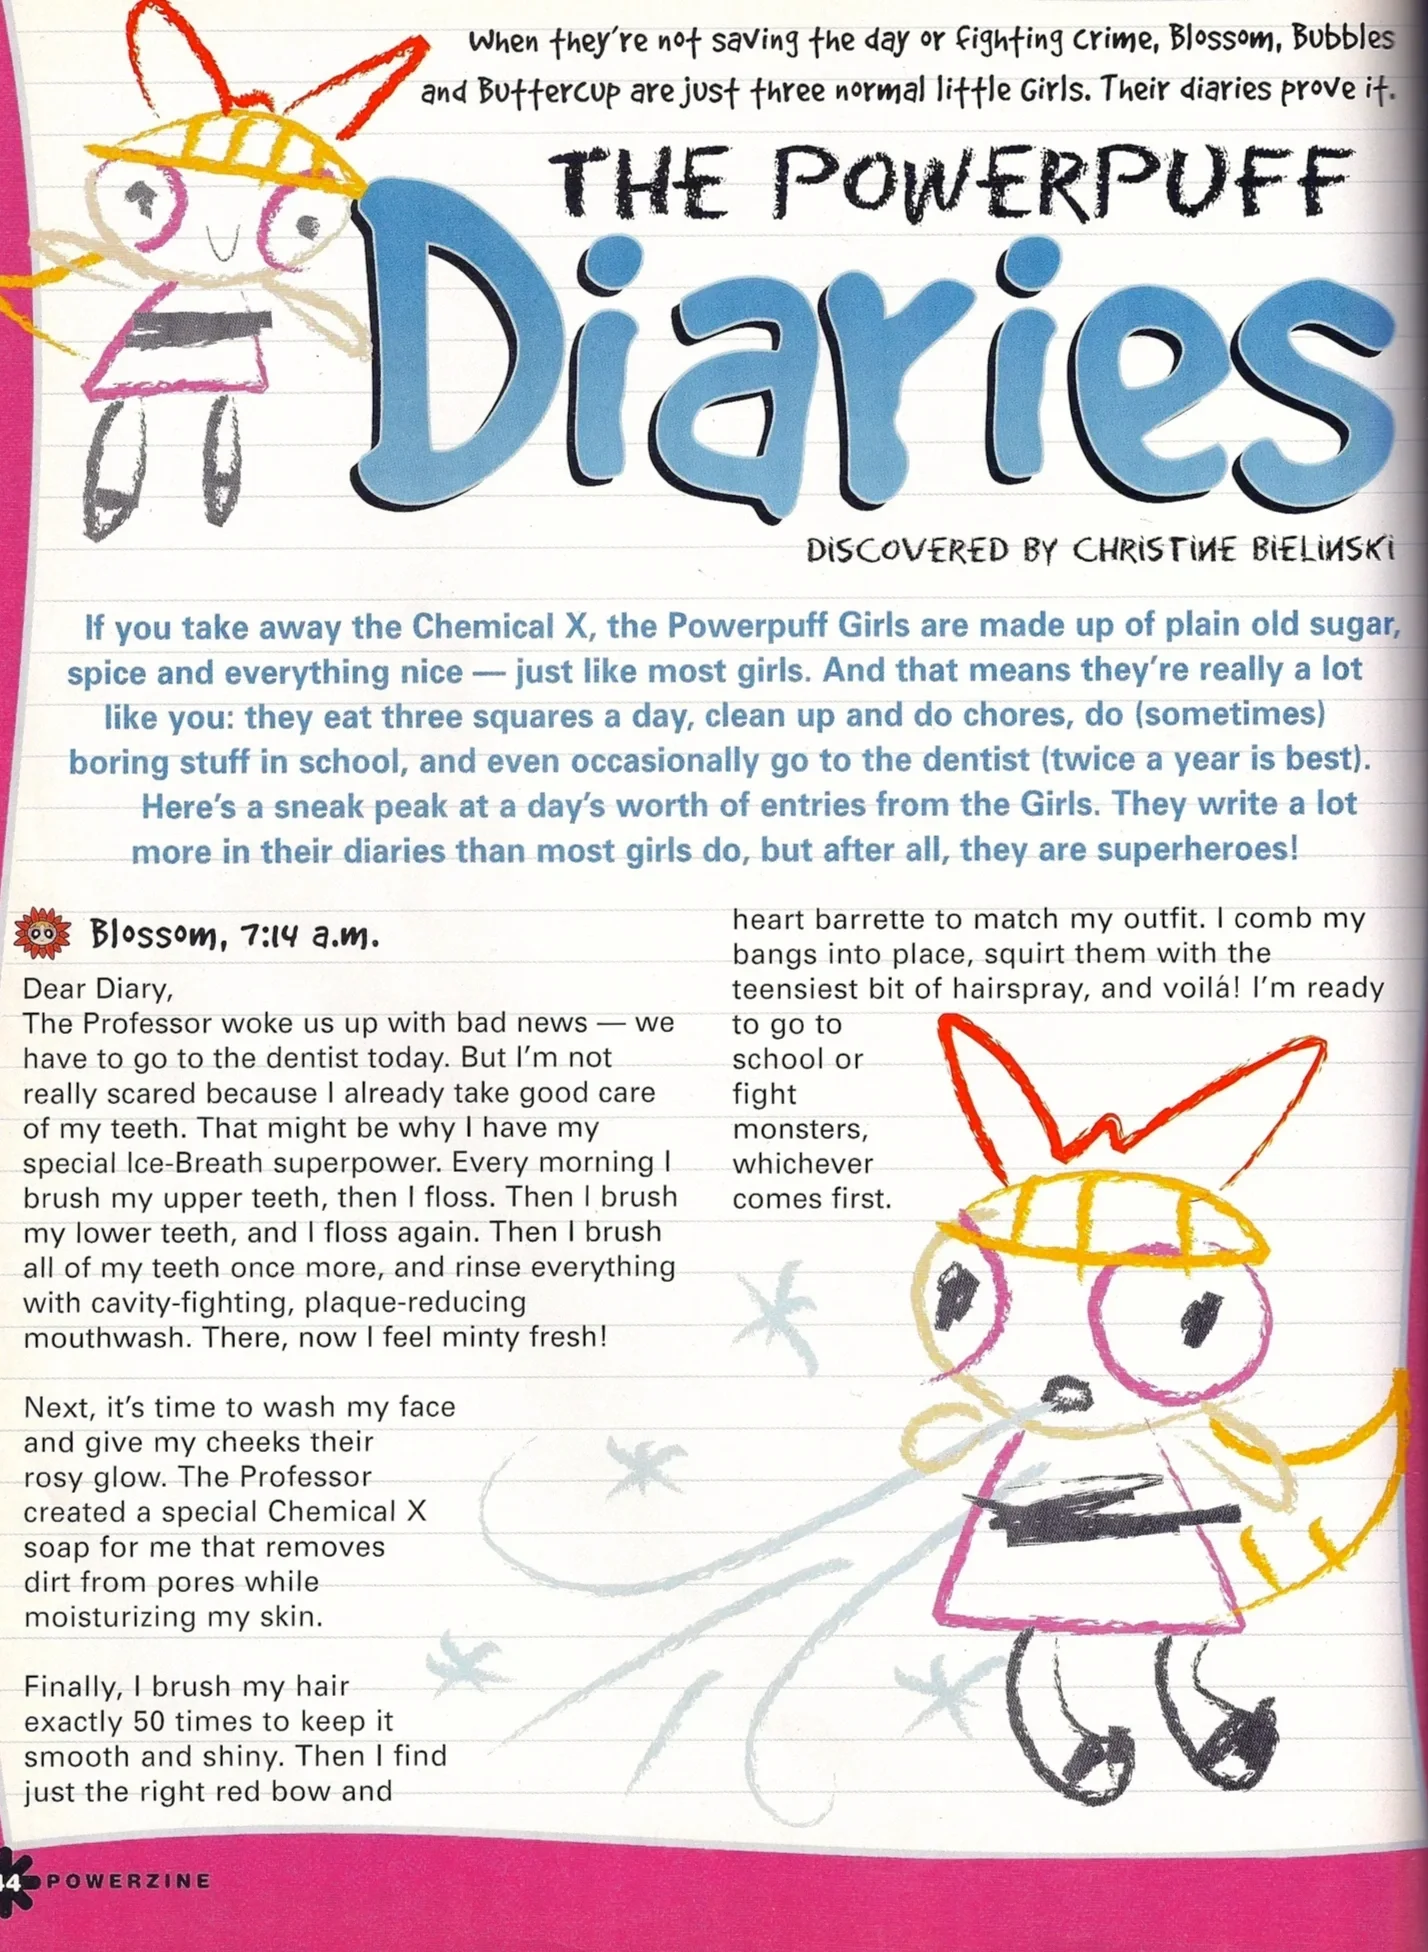 When they're not saving the day or fighting crime, Blossom, Bubbles
and Buttercup are just three normal little Girls. Their diaries prove it.
THE POWERPUFF
Diaries
DISCOVERED BY CHRISTINE BIELINSKI
If you take away the Chemical X, the Powerpuff Girls are made up of plain old sugar,
spice and everything nice — just like most girls. And that means they're really a lot
like you: they eat three squares a day, clean up and do chores, do (sometimes)
boring stuff in school, and even occasionally go to the dentist (twice a year is best).
Here's a sneak peak at a day's worth of entries from the Girls. They write a lot
more in their diaries than most girls do, but after all, they are superheroes!
Blossom, 7:14 a.m.
Dear Diary,
The Professor woke us up with bad news — we
have to go to the dentist today. But I'm not
really scared because I already take good care
of my teeth. That might be why I have my
special Ice-Breath superpower. Every morning I
brush my upper teeth, then I floss. Then I brush
my lower teeth, and I floss again. Then I brush
all of my teeth once more, and rinse everything
with cavity-fighting, plaque-reducing
mouthwash. There, now I feel minty fresh!
Next, it's time to wash my face
and give my cheeks their
rosy glow. The Professor
created a special Chemical X
soap for me that removes
dirt from pores while
moisturizing my skin.
Finally, I brush my hair
exactly 50 times to keep it
smooth and shiny. Then I find
just the right red bow and
heart barrette to match my outfit. I comb my
bangs into place, squirt them with the
teensiest bit of hairspray, and voilá! I'm ready
to go to
school or
fight
monsters,
whichever
comes first.
44 POWERZINE